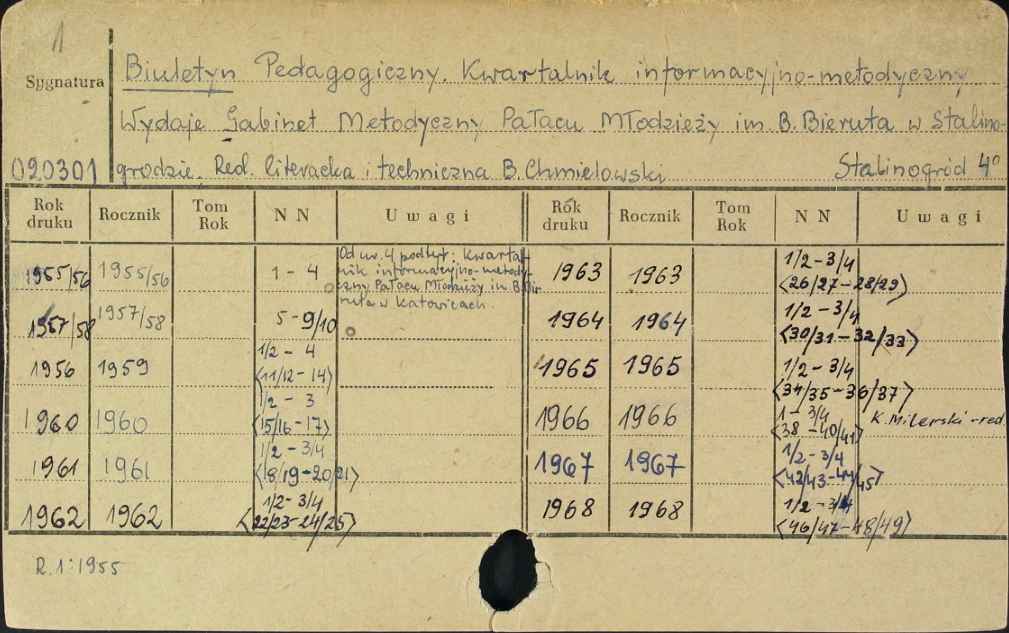 1
Sygnatura
Biuletyn Pedagogiczny. Kwartalnik informacyjno-metodyczny
Wydaje Gabinet Metodyczny Pałacu Młodzieży im. B. Bieruta w Stalino-
020301 grodzie. Red. literacka i techniczna B. Chmielowski Stalinogród 4°
Rok druku Rocznik Tom Rok NN Uwagi Rok druku Rocznik Tom Rok NN Uwagi
1955/56 1955/56 1-4
Od nr. 4 podtyt: Kwartal-
nik informacyjno-metody-
czny Pałacu Młodzieży im B. Bie-
ruta w Katowicach
1957/58 1957/58 5-9/10
1956 1959 1/2 - 4
<11/12 - 14>
1960 1960 1/2 - 3
<15/16 - 17>
1961 1961 1/2 - 3/4
<18/19-20/21>
1962 1962 1/2 - 3/4
<22/23-24/25>
1963 1963 1/2-3/4
<26/27-28/29>
1964 1964 1/2-3/4
<30/31-32/33>
1965 1965 1/2-3/4
<34/35-36/37>
1966 1966 1-3/4
<38-40/41> K. Milerski-red.
1967 1967 1/2-3/4
<42/43-44/45>
1968 1968 1/2-3/4
<46/47-48/49>
R.1:1955